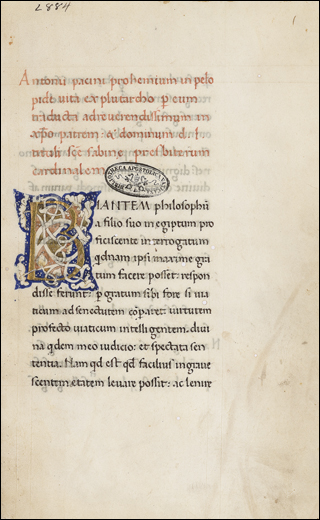 2884
1
Antonii pacini prohemium in pelo
pide vita ex plutarcho per eum
traducta ad reverendissimum in
xpo patrem & dominum d. t.
tituli sce sabine presbiterum
cardinalem
BIANTEM philosophu
a filio suo in egiptum pro
ficiscente interrogatum
qdnam ipsi maxime gra
tum facere posset: respon
disse ferunt: pgratum sibi fore si via
ticum ad senectutem coparet: virtutem
profecto viaticum intelligentem. divi
na qdem meo iudicio: et spectata sen
tentia. Nam qd est qd facilius ingrave
scentem etatem levare possit: ac lenire